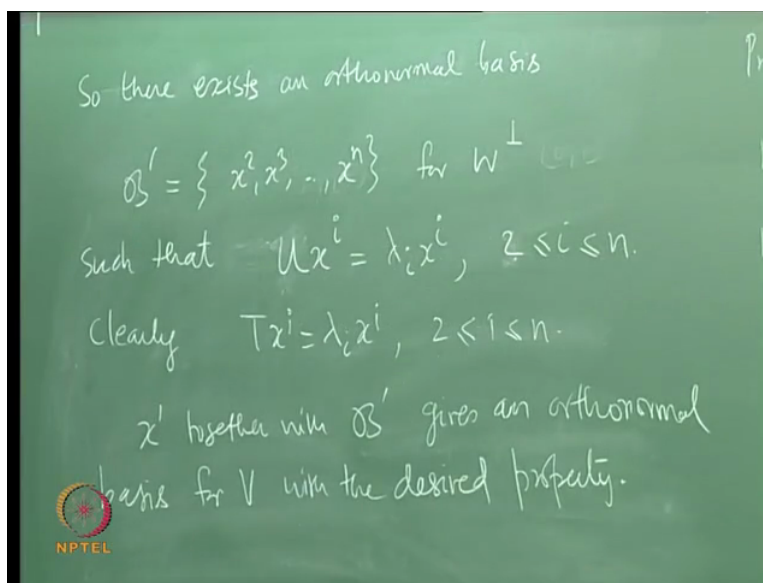 So there exists an orthonormal basis
ℬ' = { x², x³, ..., xⁿ} for W^⊥
such that Uxⁱ = λᵢxⁱ, 2 ≤ i ≤ n.
Clearly Txⁱ = λᵢxⁱ, 2 ≤ i ≤ n.
x¹ together with ℬ' gives an orthonormal
basis for V with the desired property.
NPTEL